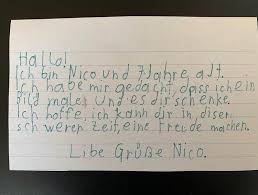 Hallo!
Ich bin Nico und 7 Jahre alt.
Ich habe mir gedacht, dass ich ein
Bild male, und es dir schenke.
Ich hoffe, ich kann dir in, diser
sch weren Zeit, eine Freude machen.
Libe Grüße Nico.